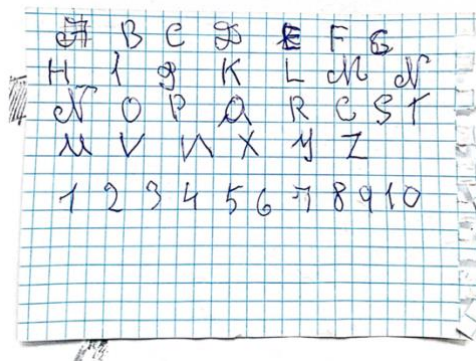 A B C D E F G
H I J K L M N
N O P Q R C S T
U V И X Y Z
1 2 3 4 5 6 7 8 9 10